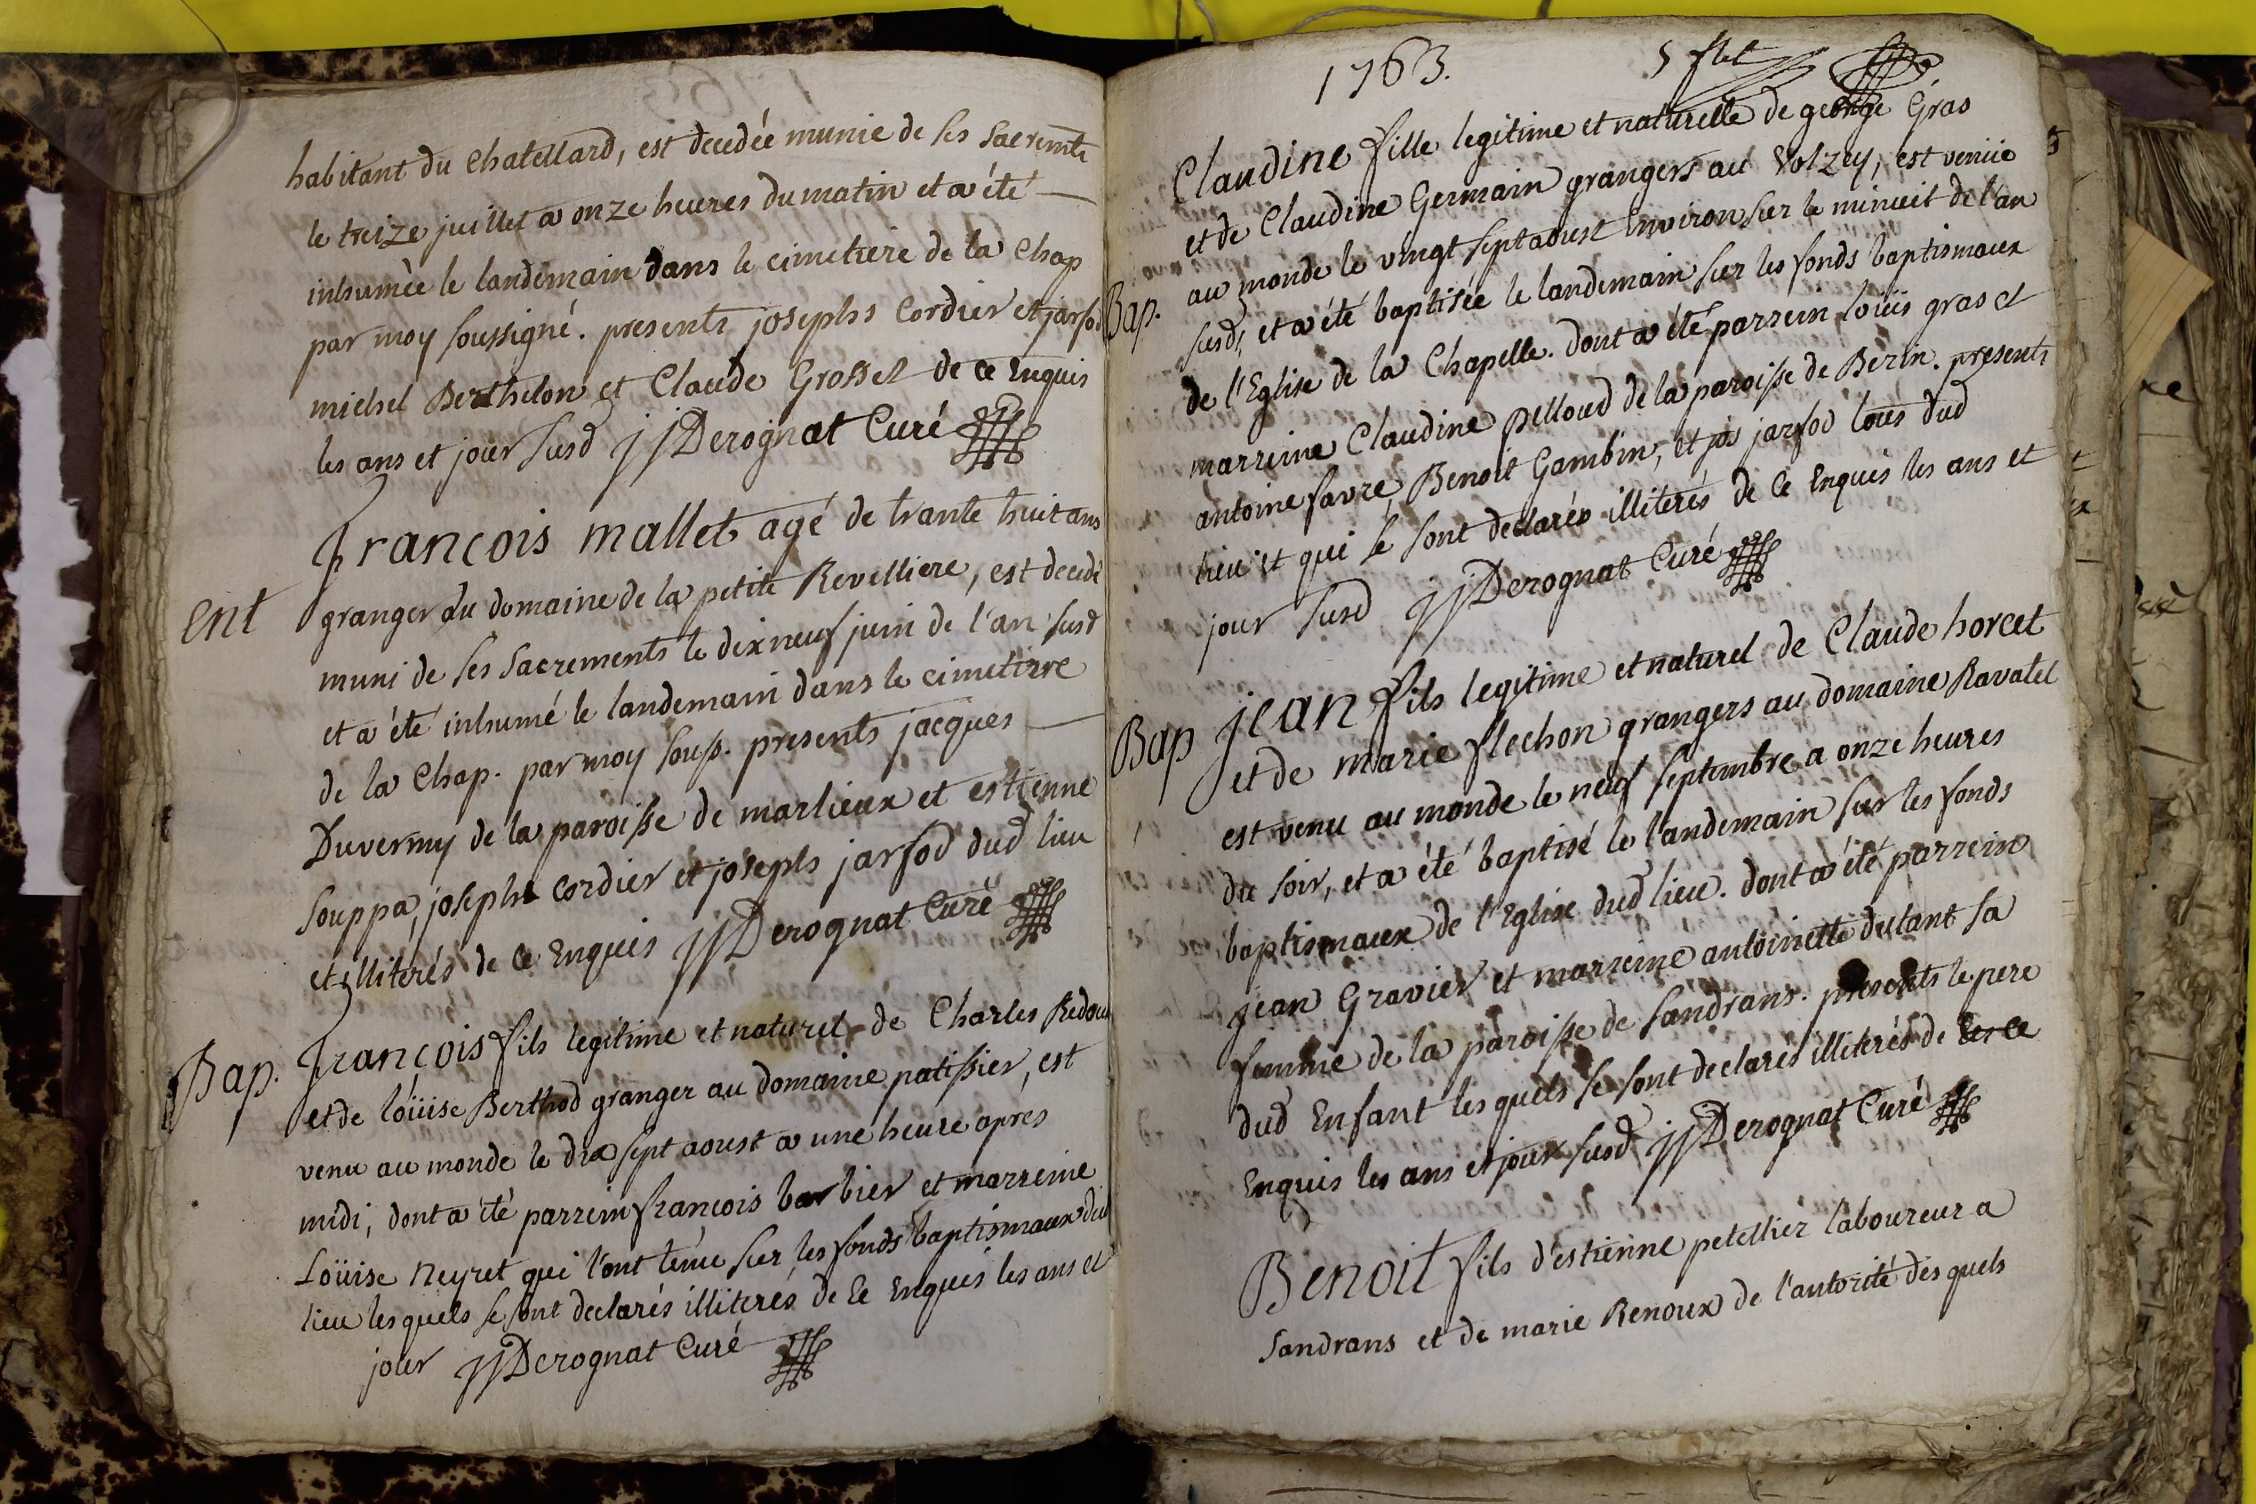 habitant du Chatellard, est decedée munie de ses sacremts
le treize juillet a onze heures du matin et a été
inhumèe le landemain dans le cimetiere de la Chap
par moy soussigné. presents josephs Cordier et jarsod
michel Berthelon et Claude Grosset de ce Enquis
les ans et jour susd jjDerognat Curé
François mallet agé de trante huit ans
Ent
granger du domaine de la petite Revelliere, est decedé
muni de ses sacrements le dixneuf juin de l'an susd
et a été inhumé le landemain dans le cimetiere
de la Chap. par moy souss. presents jacques
Duvermy de la paroisse de marlieux et estienne
souppa, joseph Cordier et joseph jarsod dud lieu
et illiterés de ce Enquis jjDerognat Curé
Bap. François fils legitime et naturel de Charles Redoux
et de loüise Berthod granger au domaine patissier, est
venu au monde le dix sept aoust a une heure apres
midi, dont a été parrein françois barbier et marreine
Loüise Neyret qui l'ont tenu sur les fonds baptismaux dud
lieu les quels se sont declarés illiterés de Ce Enquis les ans et
jour jjDerognat Curé
1763. 5 flet
Claudine fille legitime et naturelle de george Gras
et de Claudine Germain grangers au Volzey, est venüe
au monde le vingt sept aoust Environ sur le minuit de l'an
Bap.
susd, et a été baptisée le landemain sur les fonds baptismaux
de l'Eglise de la Chapelle. dont a été parrein loüis gras et
marreine Claudine pelloud de la paroisse de Berin. presents
antoine favre, Benoit Gambin, et jos jarsod tous dud
lieu et qui se sont declarés illiterés de Ce Enquis les ans et
jour susd jjDerognat Curé
Bap jean fils legitime et naturel de Claude horcet
et de marie flechon grangers au domaine Ravatel
est venu au monde le neuf septembre a onze heures
du soir, et a été baptisé le landemain sur les fonds
baptismaux de l'Eglise dud lieu. dont a été parrein
jean Gravier et marreine antoinette dutant sa
femme de la paroisse de sandrans. presents le pere
dud Enfant les quels se sont declarés illiterés de les Ce
Enquis les ans et jour susd jjDerognat Curé
Benoit fils d'estienne petellier laboureur a
sandrans et de marie Renoux de l'autorité des quels